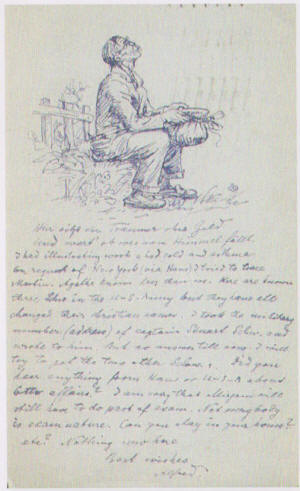 Und wart ob was vom Himmel fällt.
I had illustrating work a bad cold and asthma
on request of New York (via Hans) I tried to trace
Martin. Agathe knows less than we. Here are known
three, also in the US-Army but they have all
changed their christian names. I took the military
number (address) of captain Stuart Schw. and
wrote to him. But no answer till now. I will
try to get the two other Schw.s. Did you
hear anything from Hans or US-A about
affairs? I am sorry that Mirjam will
still have to do part of exam. Not everybody
is exam nature. Can you stay in your house?
etc? Nothing new here
Best wishes
Alfred.